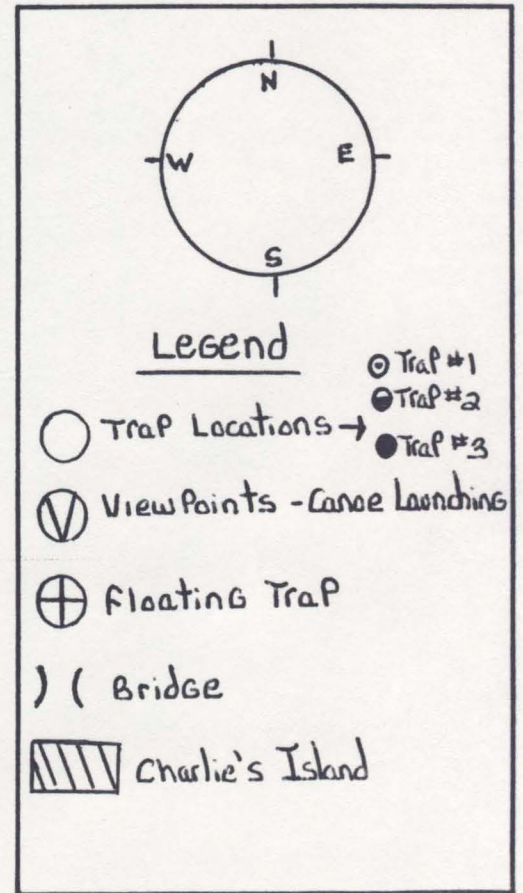 N
W E
S
Legend
Trap #1
Trap #2
Trap Locations →
Trap #3
View Points - Canoe Launching
Floating Trap
) ( Bridge
Charlie's Island